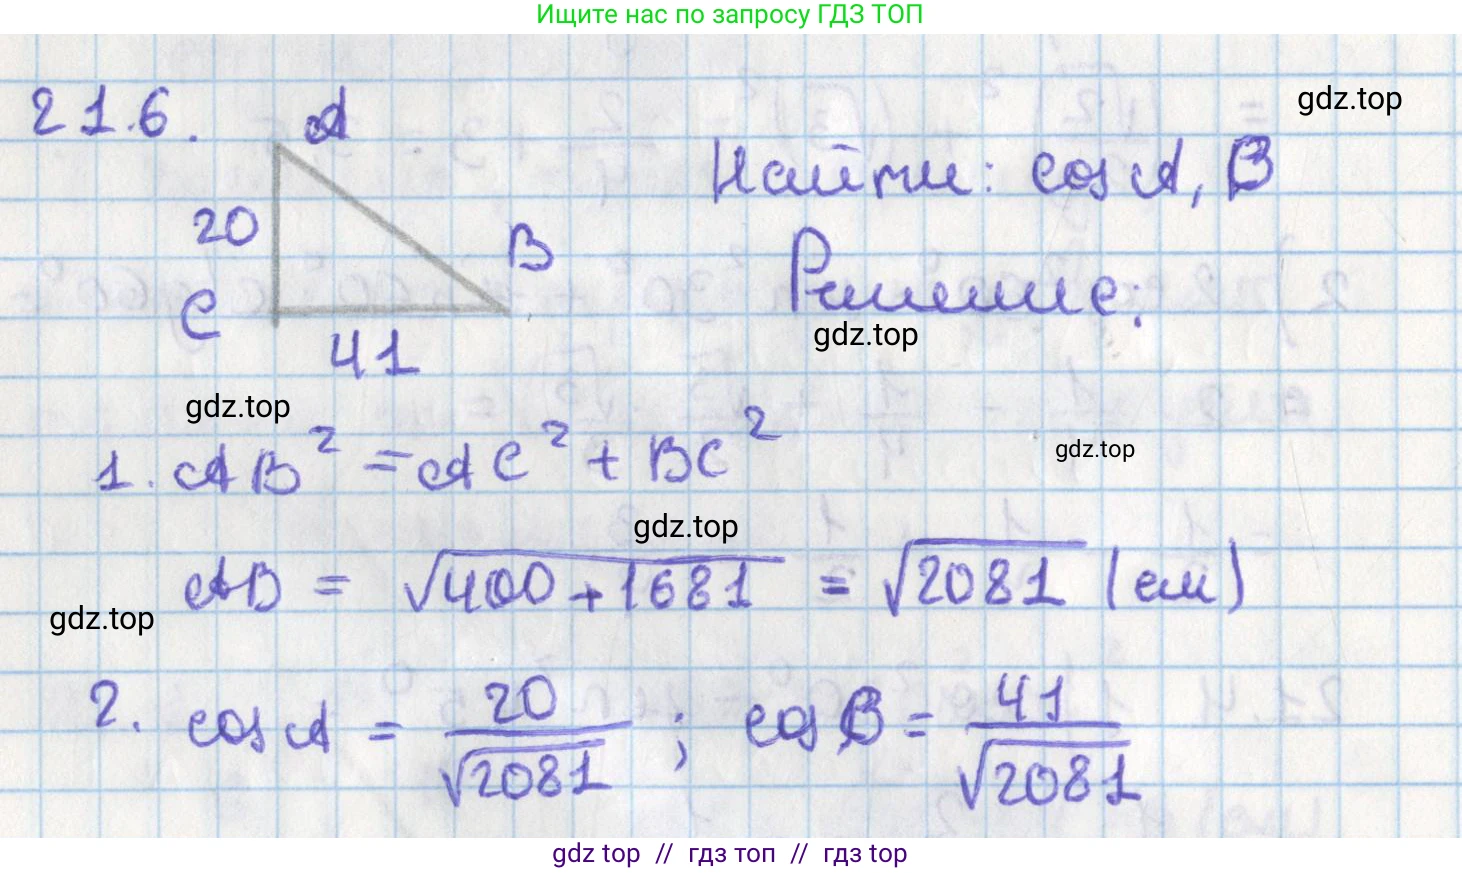 Ищите нас по запросу ГДЗ ТОП
gdz.top
21.6.
A
20
B
C
41
Найти: cos A, B
Решение:
gdz.top
gdz.top
1. AB² = AC² + BC²
gdz.top
gdz.top
AB = √400+1681 = √2081 (см)
gdz.top
2. cos A = 20/√2081 ; cos B = 41/√2081
gdz top // гдз топ // гдз top